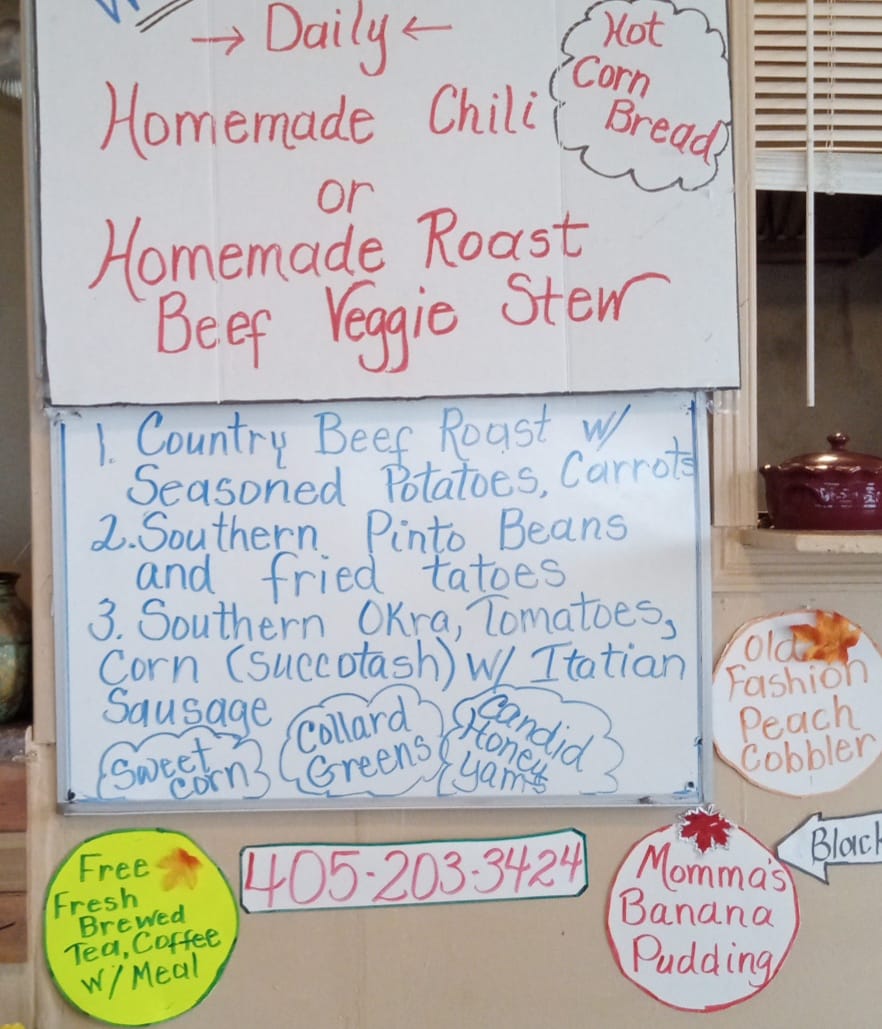 → Daily ←
Hot
Corn
Bread
Homemade Chili
or
Homemade Roast
Beef Veggie Stew
1. Country Beef Roast w/
Seasoned Potatoes, Carrots
2. Southern Pinto Beans
and fried tatoes
3. Southern Okra, Tomatoes,
Corn (Succotash) w/ Itatian
Sausage
Sweet
Corn
Collard
Greens
Candid
Honey
Yams
Old
Fashion
Peach
Cobbler
Free
Fresh
Brewed
Tea, Coffee
w/ Meal
405-203-3424
Momma's
Banana
Pudding
Black